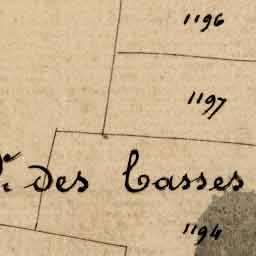 1196
1197
des Casses
1194